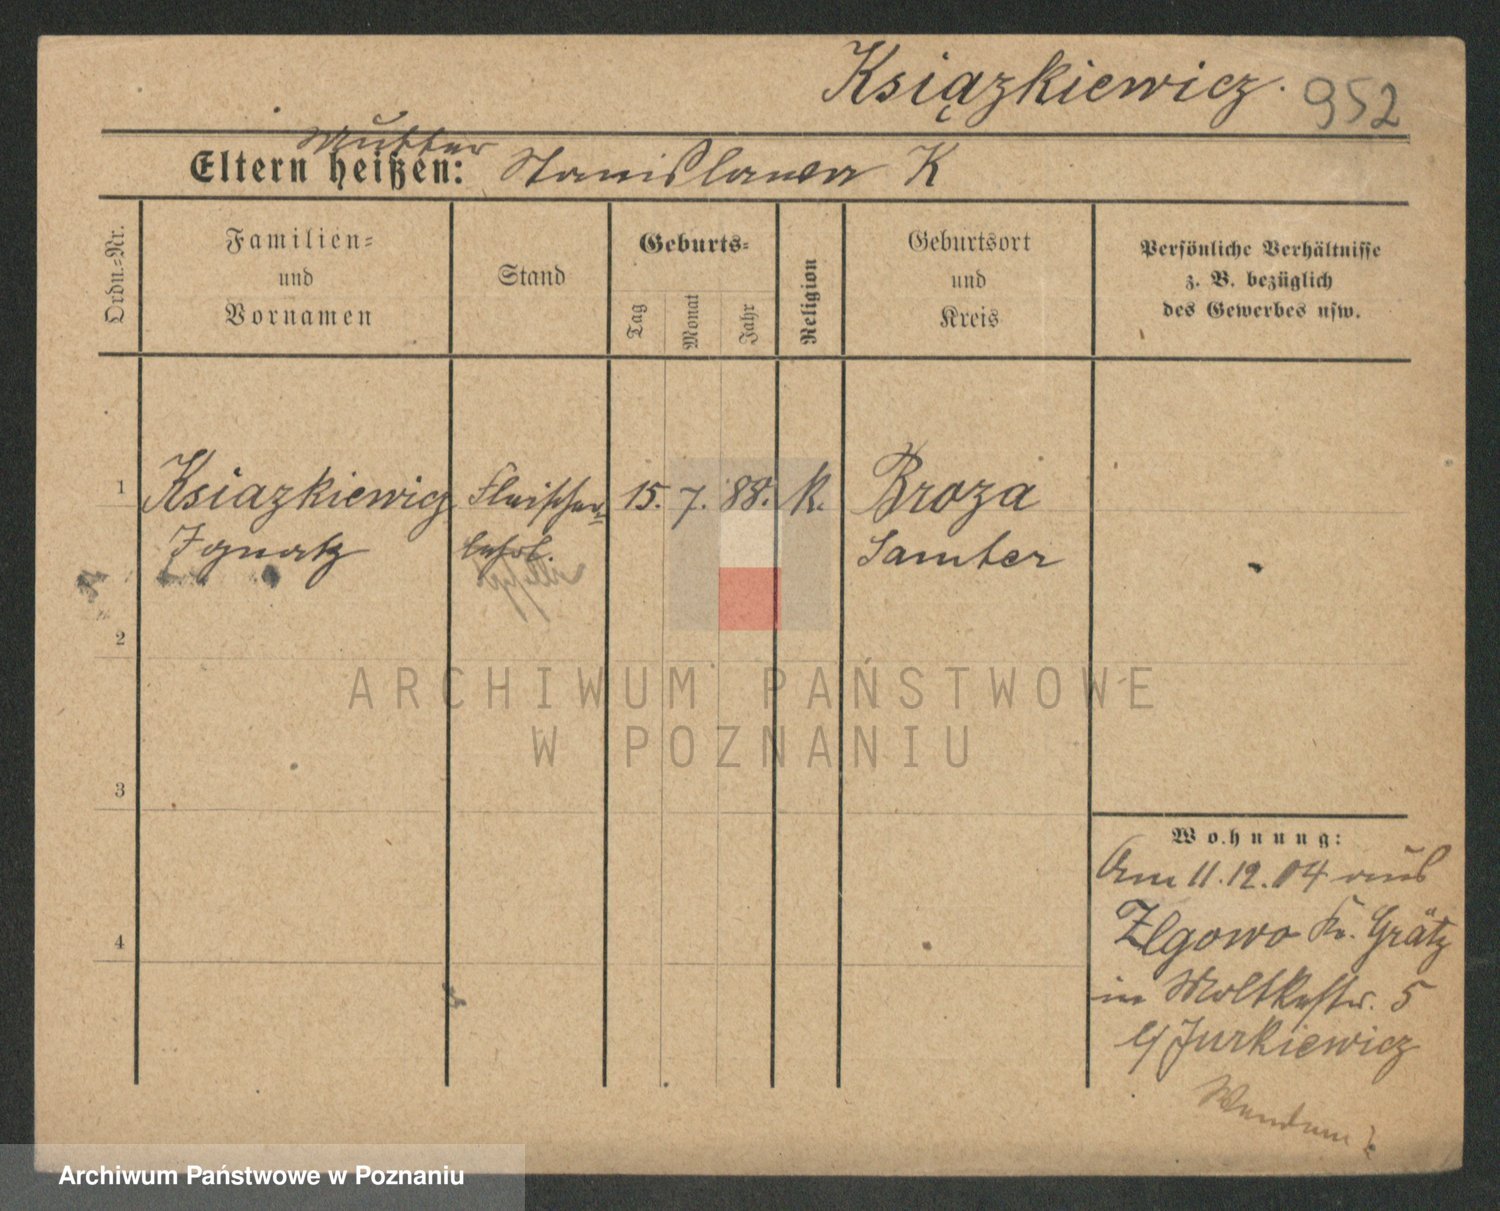 Książkiewicz. 952
Mutter
Eltern heißen: Stanislawa K
Ordn.-Nr.
Familien-
und
Vornamen
Stand
Geburts-
Tag
Monat
Jahr
Religion
Geburtsort
und
Kreis
Persönliche Verhältnisse
z. B. bezüglich
des Gewerbes usw.
1 Ksiazkiewicz Fleischer- 15. 7. 88. k. Broza
Ignatz lehrl. Samter
2
3
4
Wohnung:
Am 11.12.04 aus
Zlgowo Kr. Grätz
in Moltkestr. 5
b/ Jurkiewicz
ARCHIWUM PAŃSTWOWE
W POZNANIU
Archiwum Państwowe w Poznaniu